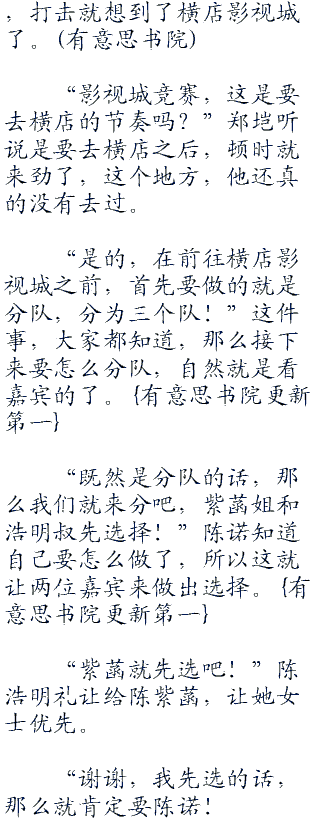 ，打击就想到了横店影视城
了。(有意思书院)
“影视城竞赛，这是要
去横店的节奏吗？”郑垲听
说是要去横店之后，顿时就
来劲了，这个地方，他还真
的没有去过。
“是的，在前往横店影
视城之前，首先要做的就是
分队，分为三个队！”这件
事，大家都知道，那么接下
来要怎么分队，自然就是看
嘉宾的了。{有意思书院更新
第一}
“既然是分队的话，那
么我们就来分吧，紫菡姐和
浩明叔先选择！”陈诺知道
自己要怎么做了，所以这就
让两位嘉宾来做出选择。{有
意思书院更新第一}
“紫菡就先选吧！”陈
浩明礼让给陈紫菡，让她女
士优先。
“谢谢，我先选的话，
那么就肯定要陈诺！